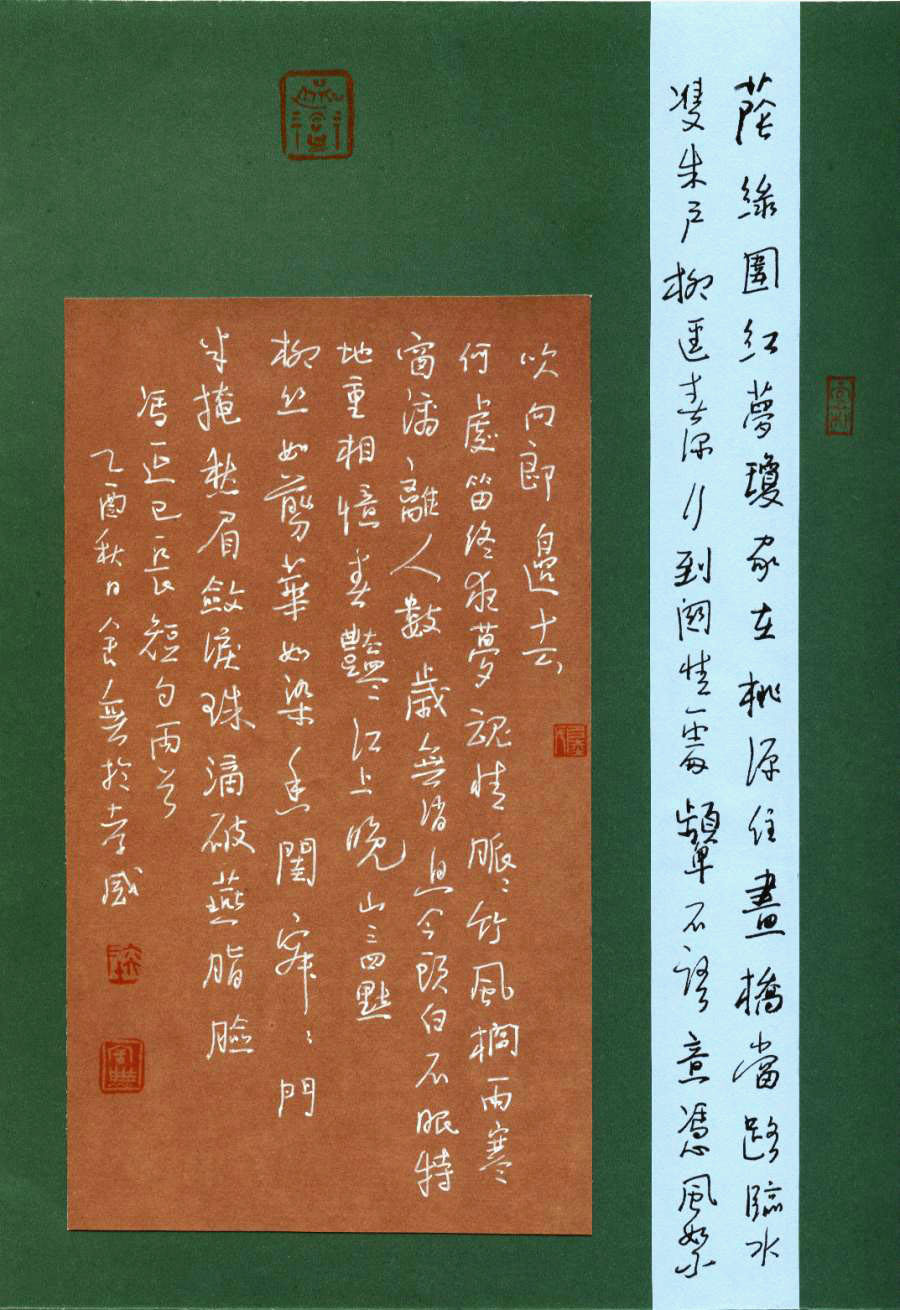 蔭綠圍紅夢瓊家在桃源住畫橋當路臨水
雙朱戶柳徑春深行到關情處顰不語意憑風絮
吹向郎邊去
何處笛終夜夢魂情脈々竹風檐雨寒
窗滴々離人數歲無消息今頭白不眠特
地重相憶春豔々江上晚山三四點
柳絲如翦華如染香閨寂々門
半掩愁眉斂淚珠滴破燕脂臉
馮延巳長短句兩首
乙酉秋日金無於孝感